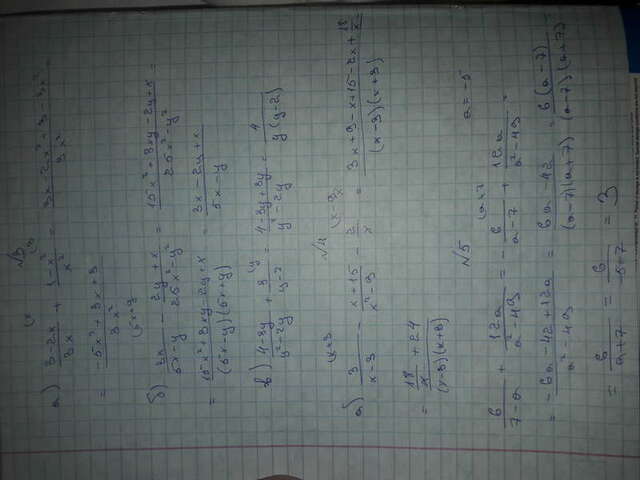 №3
а) (3-2x)/3x + (1-x²)/x² = (3x-2x²+3-3x²)/3x² =
= (-5x²+3x+3)/3x²
б) 3x/(5x-y) - (2y+x)/(25x²-y²) = (15x²+3xy-2y+x)/(25x²-y²) =
= (15x²+3xy-2y+x)/((5x-y)(5x+y)) = (3x-2y+x)/(5x-y)
в) (4-3y)/(y²-2y) + 3/(y-2) = (4-3y+3y)/(y²-2y) = 4/(y(y-2))
№4
а) 3/(x-3) - (x+15)/(x²-9) - 2/x = (3x+9-x+15-2x+18/x)/((x-3)(x+3))
= (18/x + 24)/((x-3)(x+3))
№5 a=-5
6/(7-a) + 12a/(a²-49) = -6/(a-7) + 12a/(a²-49) =
= (-6a-42+12a)/(a²-49) = (6a-42)/((a-7)(a+7)) = 6(a-7)/((a-7)(a+7)) =
= 6/(a+7) = 6/(-5+7) = 3